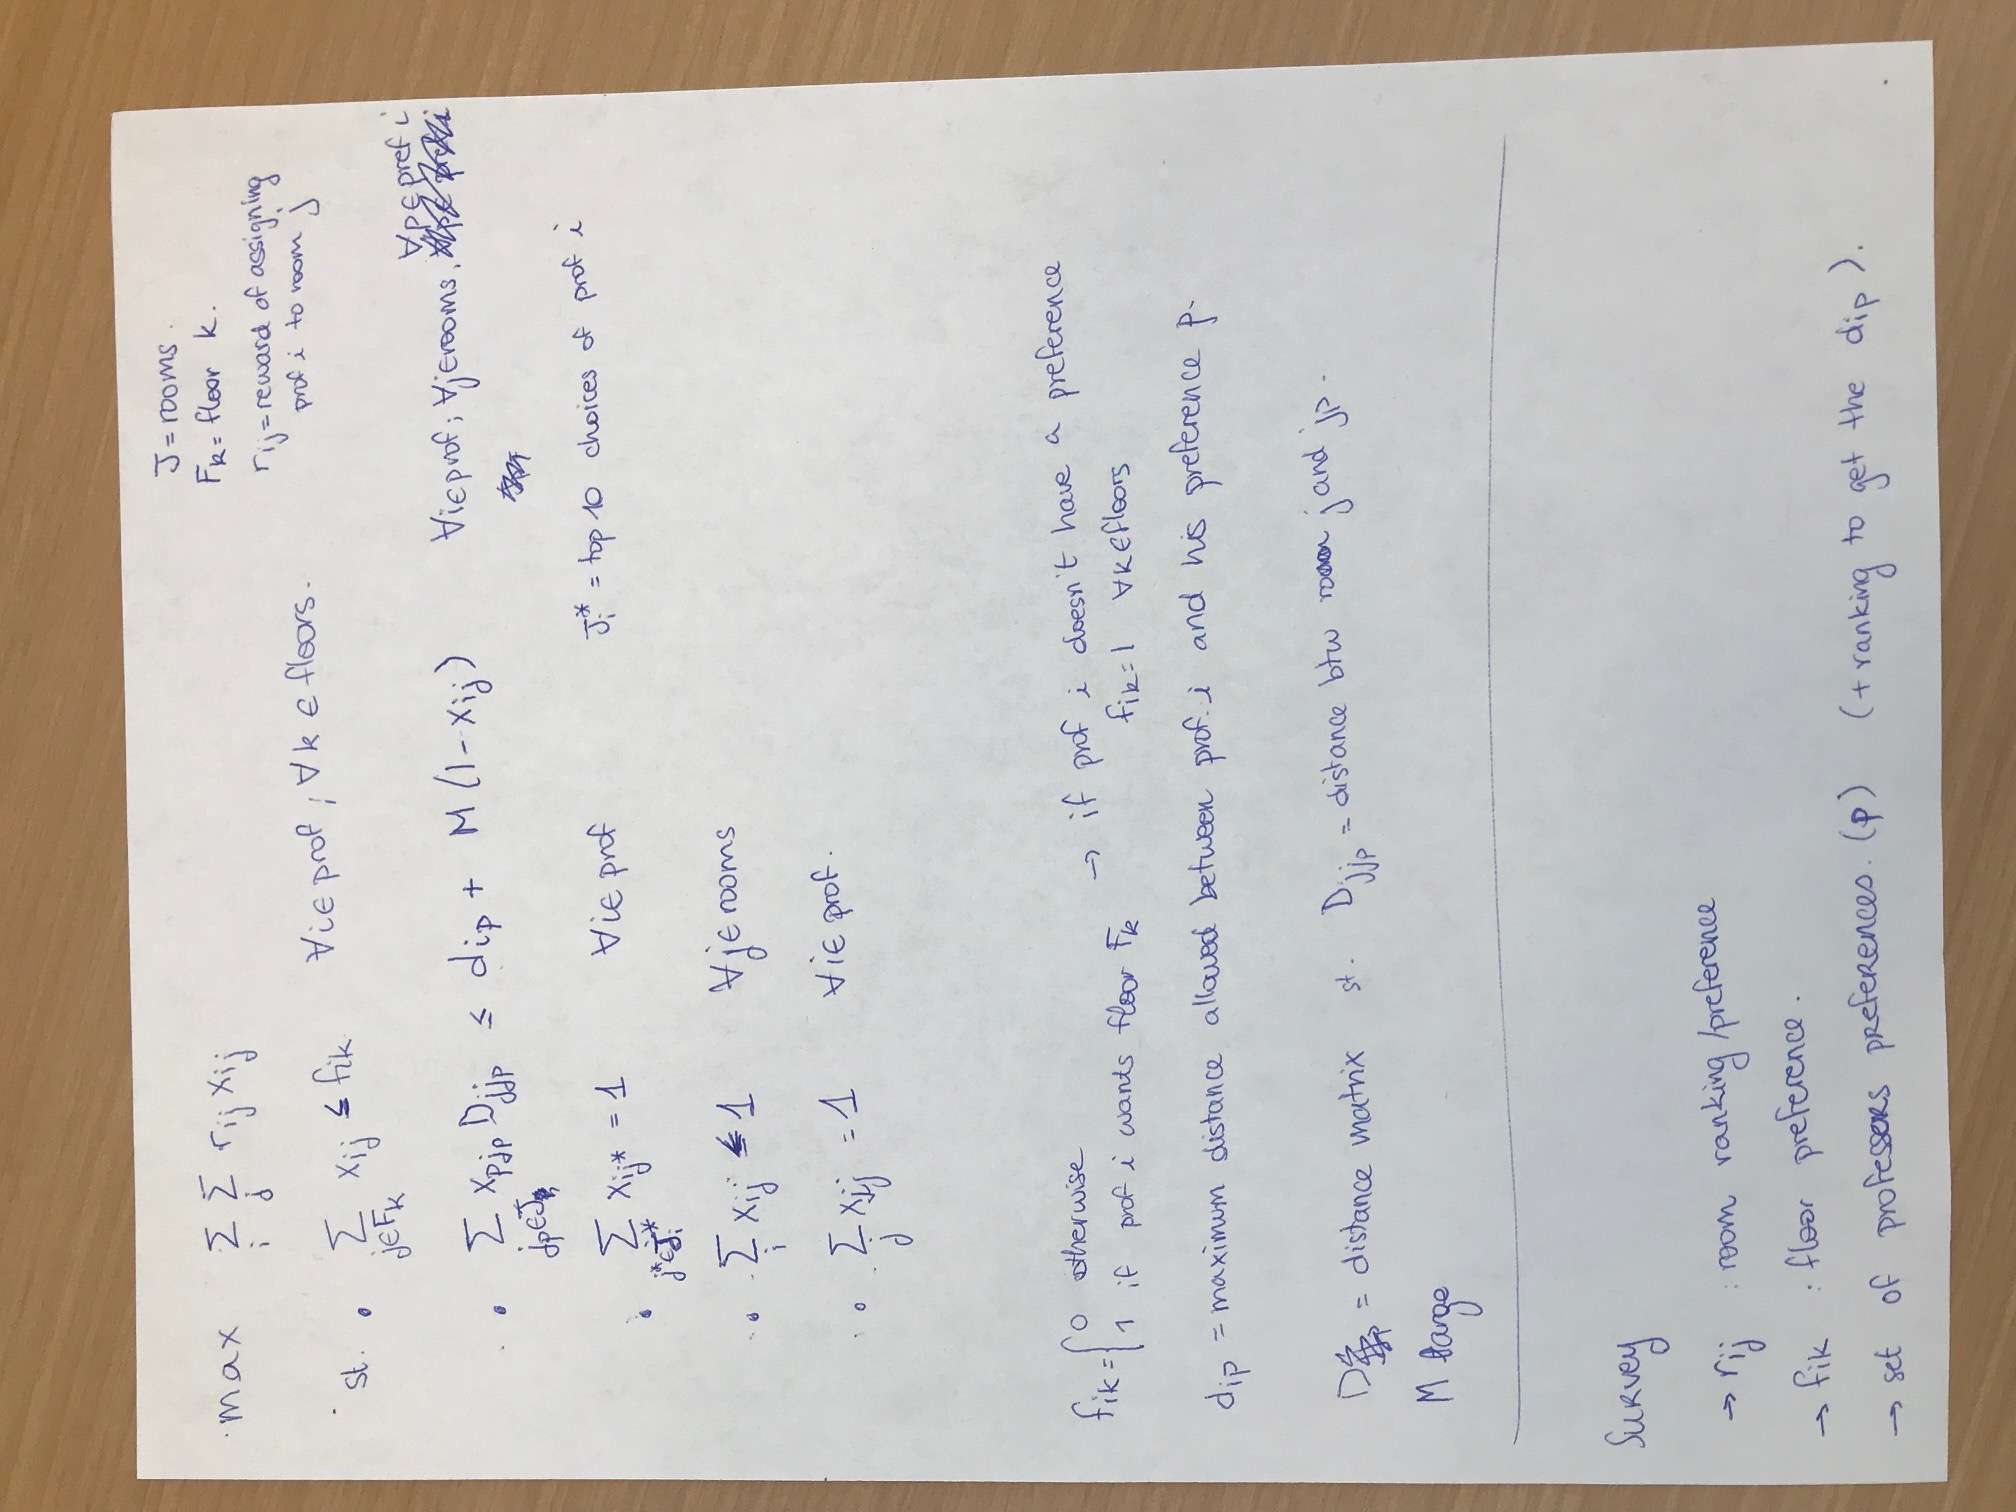 max ∑_i ∑_j r_ij x_ij
J = rooms.
F_k = floor k.
r_ij = reward of assigning
prof i to room j
st. • ∑_{j∈F_k} x_ij ≤ f_ik ∀i∈ prof ; ∀k ∈ floors.
• ∑_{j_p∈J} x_{pj_p} D_{jj_p} ≤ d_ip + M (1 - x_ij) ∀i∈prof ; ∀j∈rooms, ∀p∈pref i
• ∑_{j*∈J_i*} x_ij* = 1 ∀i∈ prof J_i* = top 10 choices of prof i
• ∑_i x_ij ≤ 1 ∀j∈ rooms
• ∑_j x_ij = 1 ∀i∈ prof.
f_ik = { 0 otherwise → if prof i doesn't have a preference
1 if prof i wants floor F_k f_ik = 1 ∀k∈floors
d_ip = maximum distance allowed between prof. i and his preference p.
D = distance matrix st. D_{jj_p} = distance btw room j and j_p.
M large
Survey
→ r_ij : room ranking/preference
→ f_ik : floor preference.
→ set of professors preferences. (p) (+ ranking to get the d_ip).